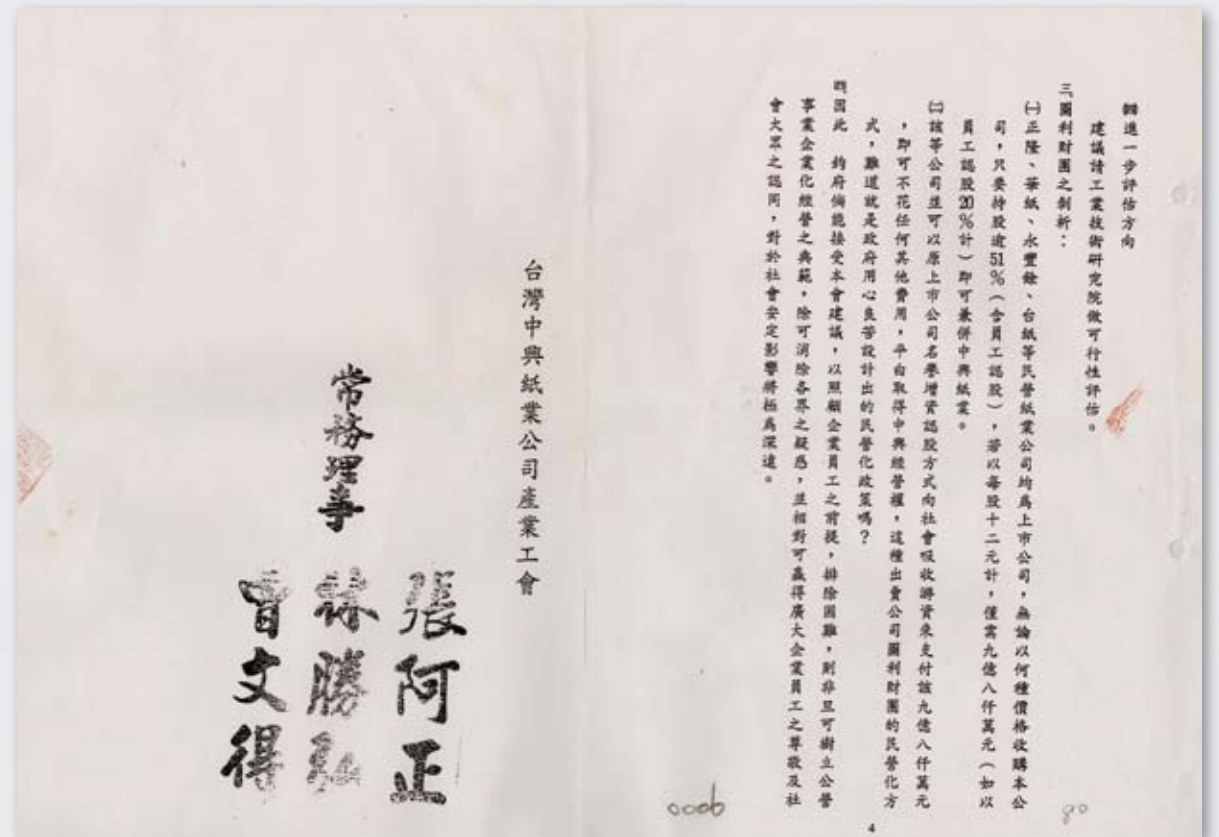 進一步評估方向
建議請工業技術研究院做可行性評估。
三、圖利財團之剖析：
㈠正隆、華紙、永豐餘、台紙等民營紙業公司均為上市公司，無論以何種價格收購本公
司，只要持股逾51％（含員工認股），若以每股十二元計，僅需九億八仟萬元（如以
員工認股20％計）即可兼併中興紙業。
㈡該等公司並可以原上市公司名譽增資認股方式向社會吸收游資來支付該九億八仟萬元
，即可不花任何其他費用，平白取得中興經營權，這種出賣公司圖利財團的民營化方
式，難道就是政府用心良苦設計出的民營化政策嗎？
因此　鈞府倘能接受本會建議，以照顧企業員工之前提，排除困難，則非旦可樹立公營
事業企業化經營之典範，除可消除各界之疑惑，並相對可贏得廣大企業員工之尊敬及社
會大眾之認同，對於社會安定影響將極為深遠。
台灣中興紙業公司產業工會
常務理事
張阿正
林勝弘
曾文得
4
0006
80